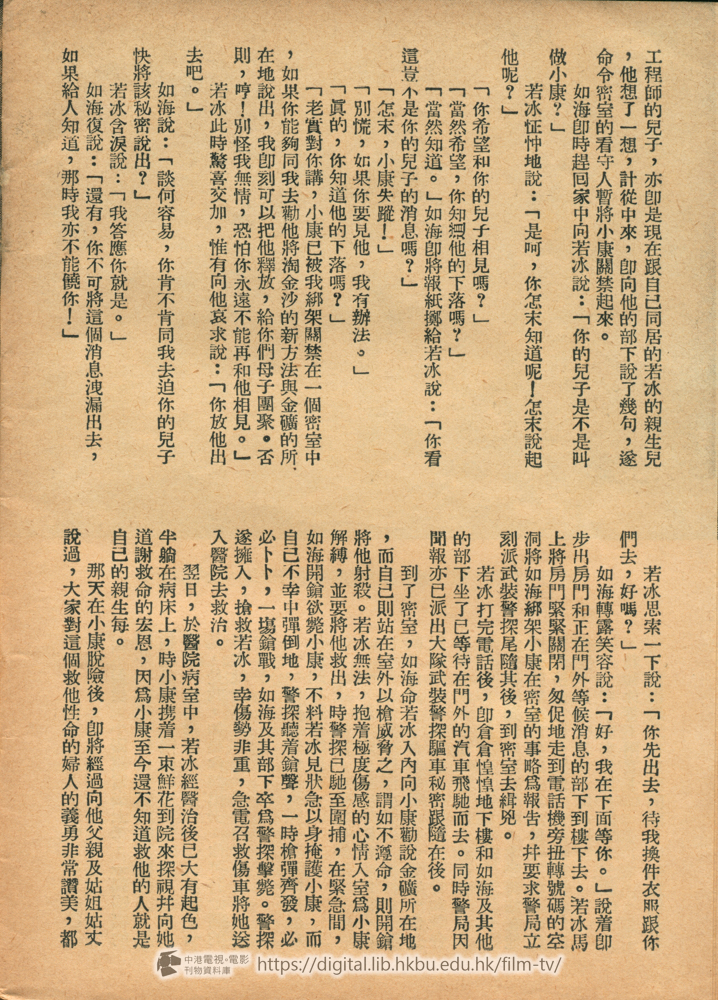 工程師的兒子，亦卽是現在跟自己同居的若冰的親生兒
，他想了一想，計從中來，卽向他的部下說了幾句，遂
命令密室的看守人暫將小康關禁起來。
如海卽時趕回家中向若冰說：「你的兒子是不是叫
做小康？」
若冰怔忡地說：「是呵，你怎末知道呢！怎末說起
他呢？」
「你希望和你的兒子相見嗎？」
「當然希望，你知他的下落嗎？」
「當然知道。」如海卽將報紙擲給若冰說：「你看
這豈不是你的兒子的消息嗎？」
「怎末，小康失蹤！」
「別慌，如果你要見他，我有辦法。」
「眞的，你知道他的下落嗎？」
「老實對你講，小康已被我綁架關禁在一個密室中
，如果你能夠同我去勸他將淘金沙的新方法與金礦的所
在地說出，我卽刻可以把他釋放，給你們母子團聚。否
則，哼！別怪我無情，恐怕你永遠不能再和他相見。」
若冰此時驚喜交加，惟有向他哀求說：「你放他出
去吧。」
如海說：「談何容易，你肯不肯同我去迫你的兒子
快將該秘密說出？」
若冰含淚說：「我答應你就是。」
如海復說：「還有，你不可將這個消息洩漏出去，
如果給人知道，那時我亦不能饒你！」
若冰思索一下說：「你先出去，待我換件衣服跟你
們去，好嗎？」
如海轉露笑容說：「好，我在下面等你。」說着卽
步出房門和正在門外等候消息的部下到樓下去。若冰馬
上將房門緊緊關閉，匆促地走到電話機旁扭轉號碼的空
洞將如海綁架小康在密室的事略爲報吿，幷要求警局立
刻派武裝警探尾隨其後，到密室去緝兇。
若冰打完電話後，卽倉倉惶惶地下樓和如海及其他
的部下坐了已等待在門外的汽車飛馳而去。同時警局因
聞報亦已派出大隊武裝警探驅車秘密跟隨在後。
到了密室，如海命若冰入內向小康勸說金礦所在地
，而自己則站在室外以槍威脅之，謂如不遵命，則開鎗
將他射殺。若冰無法，抱着極度傷感的心情入室爲小康
解縛，並要將他救出，時警探已馳至圍捕，在緊急間，
如海開鎗欲斃小康，不料若冰見狀急以身掩護小康，而
自己不幸中彈倒地，警探聽着鎗聲，一時槍彈齊發，必
必卜卜，一塲鎗戰，如海及其部下卒爲警探擊斃。警探
遂擁入，搶救若冰，幸傷勢非重，急電召救傷車將她送
入醫院去救治。
翌日，於醫院病室中，若冰經醫治後已大有起色，
半躺在病床上，時小康携着一束鮮花到院來探視幷向她
道謝救命的宏恩，因爲小康至今還不知道救他的人就是
自己的親生母。
那天在小康脫險後，卽將經過向他父親及姑姐姑丈
說過，大家對這個救他性命的婦人的義勇非常讚美，都
中港電視·電影
刊物資料庫
https://digital.lib.hkbu.edu.hk/film-tv/